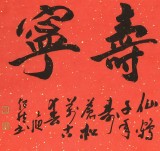 壽寧
仙鶴
千年壽
蒼松
萬古
春